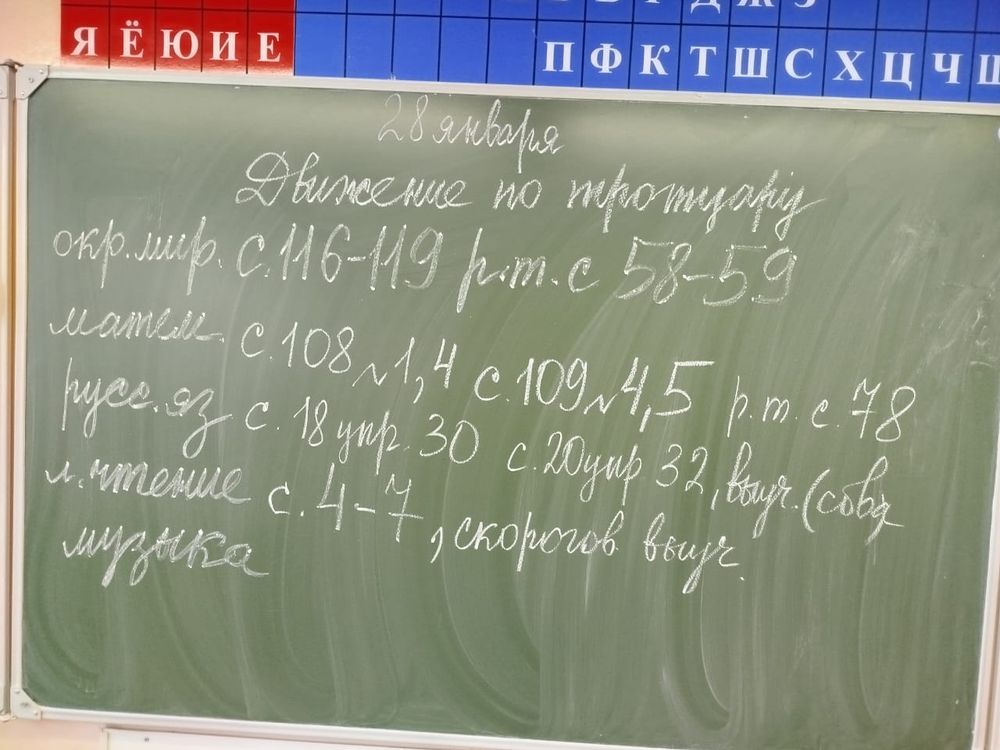 Я Ё Ю И Е
П Ф К Т Ш С Х Ц Ч Щ
28 января
Движение по тротуару
окр.мир. с.116-119 р.т.с 58-59
матем. с.108 №1,4 с.109 №4,5 р.т. с.78
русс.яз с.18 упр.30 с.20 упр 32, выуч.
л.чтение с.4-7, скорогов. выуч.
музыка